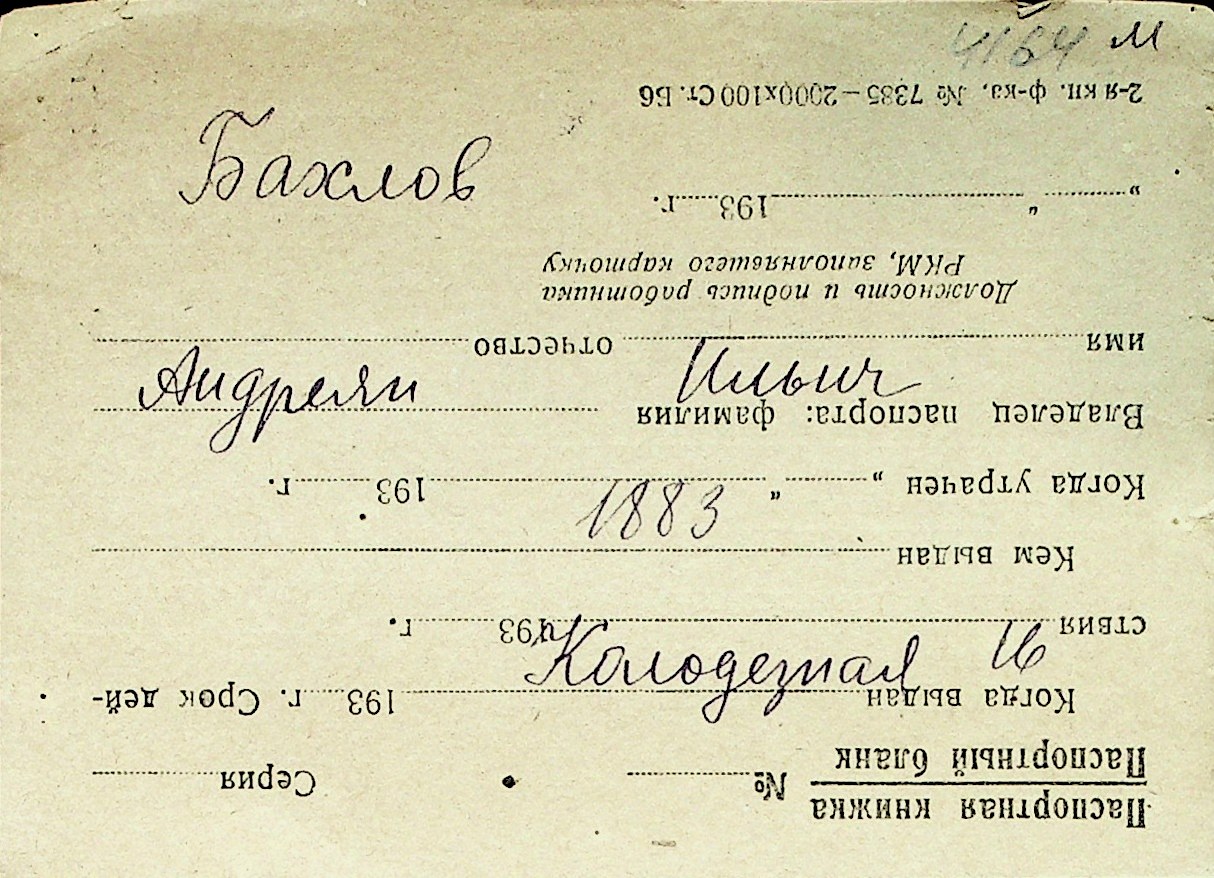 4164 м
Бахлов
Андреян Ильич
1883
Колодезная 16
Паспортная книжка
Паспортный бланк № Серия
Когда выдан 193 г. Срок дей-
ствия 193 г.
Кем выдан
Когда утрачен „ “ 193 г.
Владелец паспорта: фамилия
имя отчество
Должность и подпись работника
РКМ, заполнявшего карточку
„ “ 193 г.
2-я кн. ф-ка. № 7385—2000х100 Ст. Б6